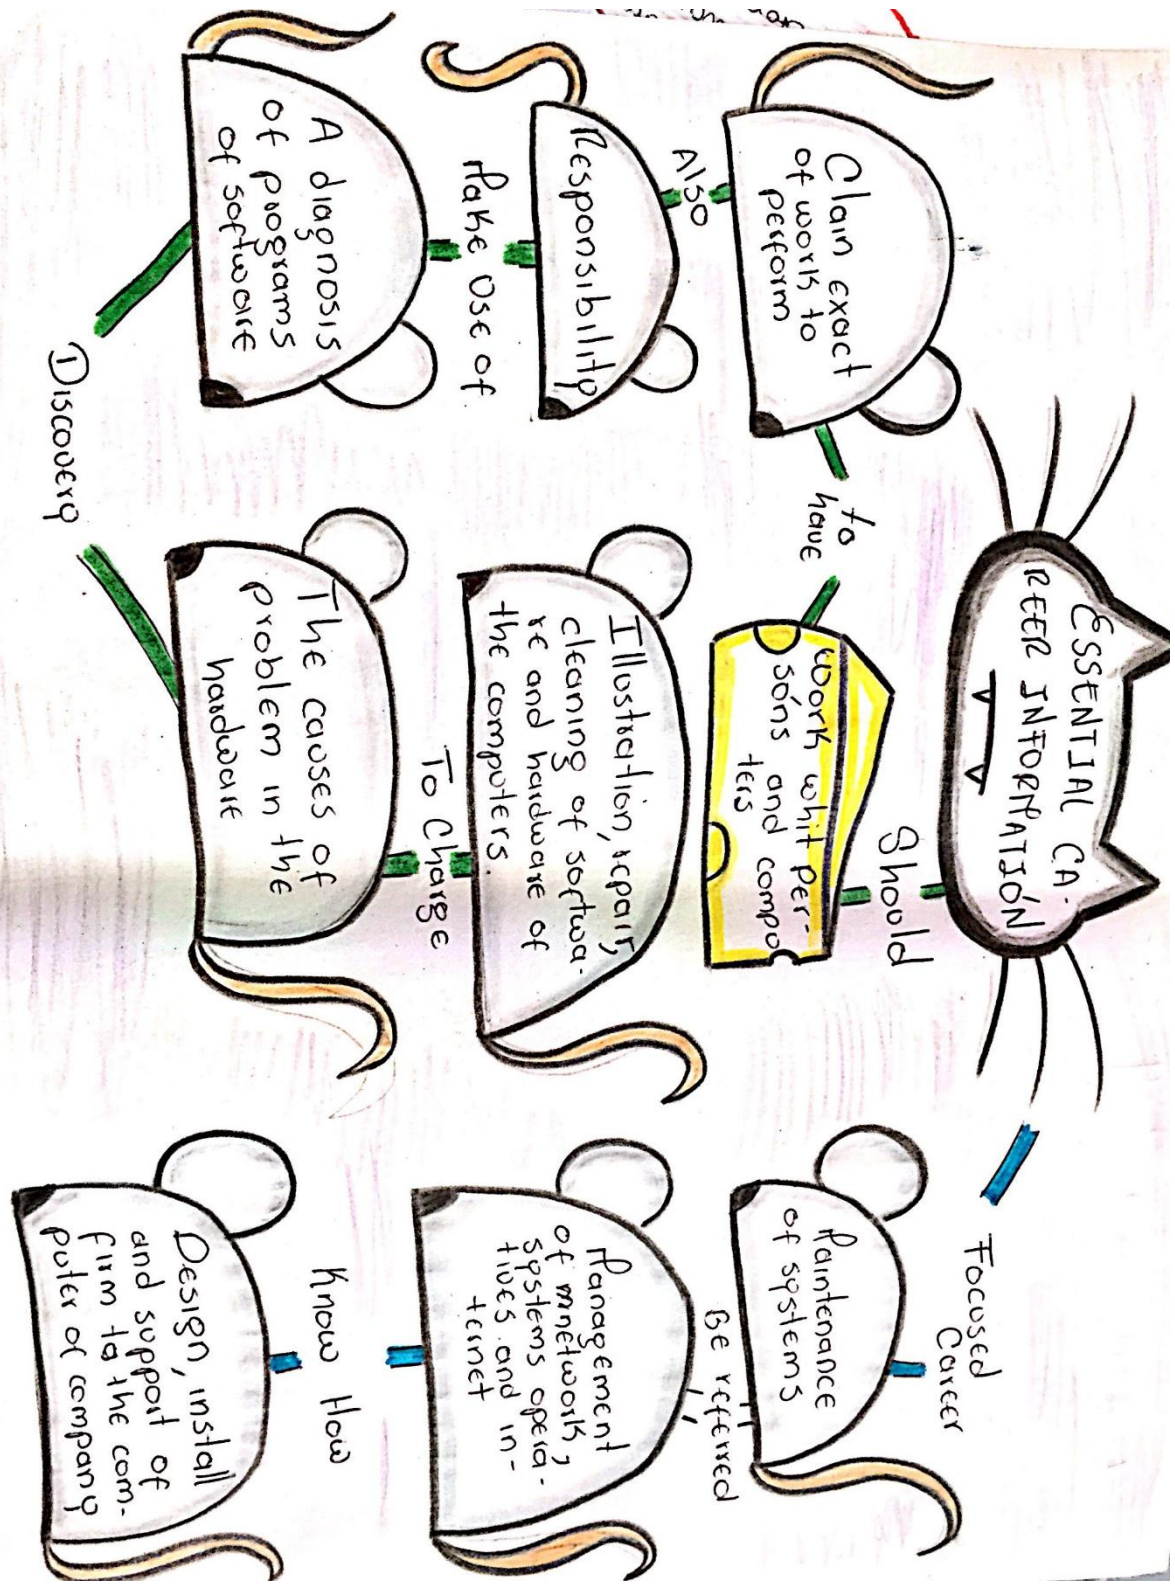 ESSENTIAL CA-
REER INFORMATIÓN
Should
Work whit per-
sóns and compu
ters
to
have
Clain exact
of work to
perform
Also
Responsibility
Make Use of
A diagnosis
of programs
of software
Discovery
The causes of
problem in the
hardware
To Charge
Illustration, repair,
cleaning of softwa-
re and hardware of
the computers.
Focused
Career
Maintenance
of systems
Be referred
Management
of mnetwork,
systems opera-
tives and in-
ternet
Know How
Design, install
and support of
firm to the com-
puter of company